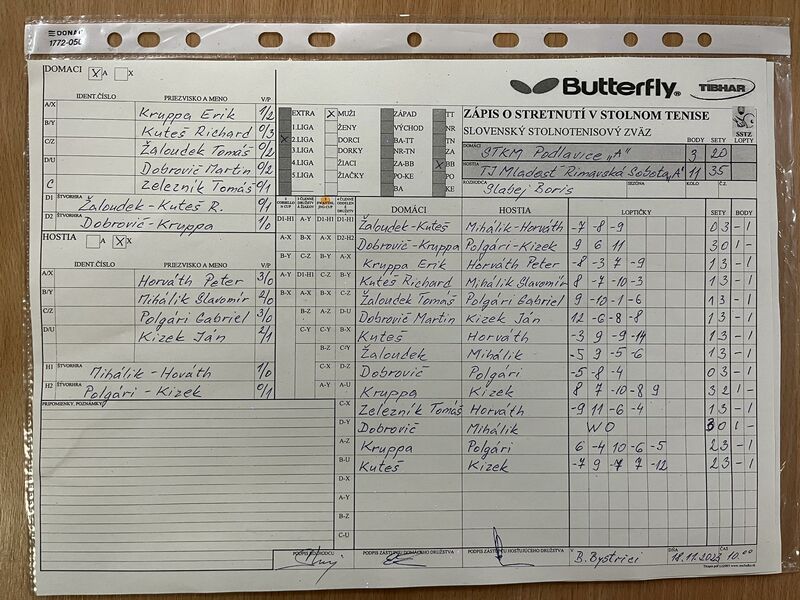 DONAU
1772-050
DOMACI X A X
IDENT.ČÍSLO PRIEZVISKO A MENO V/P
A/X Kruppa Erik 1/2
B/Y Kuteš Richard 0/3
C/Z Žaloudek Tomáš 0/2
D/U Dobrovič Martin 0/2
C Železník Tomáš 0/1
D1 ŠTVORHRA Žaloudek-Kuteš R. 0/1
D2 ŠTVORHRA Dobrovič-Kruppa 1/0
HOSTIA A X X
IDENT.ČÍSLO PRIEZVISKO A MENO V/P
A/X Horváth Peter 3/0
B/Y Mihálik Slavomír 2/0
C/Z Polgári Gabriel 3/0
D/U Kizek Ján 2/1
H1 ŠTVORHRA Mihálik - Hováth 1/0
H2 ŠTVORHRA Polgári - Kizek 0/1
PRIPOMIENKY, POZNÁMKY
Butterfly TIBHAR
EXTRA X MUŽI ZÁPAD TT
1.LIGA ŽENY VÝCHOD NR
X 2.LIGA DORCI BA-TT TN
3.LIGA DORKY NR-TN ZA
4.LIGA ŽIACI ZA-BB X BB
5.LIGA ŽIAČKY PO-KE PO
BA KE
ZÁPIS O STRETNUTÍ V STOLNOM TENISE
SLOVENSKÝ STOLNOTENISOVÝ ZVÄZ
BODY SETY LOPTY
SSTZ
DOMÁCI STKM Podlavice "A" 3 20
HOSTIA TJ Mladosť Rimavská Sobota "A" 11 35
ROZHODCA Slabej Boris SEZÓNA KOLO Č.Z.
DOMÁCI HOSTIA LOPTIČKY SETY BODY
D1-H1 A-Y D1-H1 D1-H1 Žaloudek-Kuteš Mihálik-Horváth -7 -8 -9 0 3 - 1
A-X B-X A-X D2-H2 Dobrovič-Kruppa Polgári-Kizek 9 6 11 3 0 1 -
B-Y C-Z B-Y A-X Kruppa Erik Horváth Peter -8 -3 7 -9 1 3 - 1
A-Y D1-H1 C-Z B-Y Kuteš Richard Mihálik Slavomír 8 -7 -10 -3 1 3 - 1
B-X A-X B-X C-Z Žaloudek Tomáš Polgári Gabriel 9 -10 -1 -6 1 3 - 1
B-Z A-Z D-U Dobrovič Martin Kizek Ján 12 -6 -8 -8 1 3 - 1
C-Y C-Y B-X Kuteš Horváth -3 9 -9 -14 1 3 - 1
B-Z C-Y Žaloudek Mihálik -5 9 -5 -6 1 3 - 1
C-X D-Z Dobrovič Polgári -5 -8 -4 0 3 - 1
A-Y A-U Kruppa Kizek 8 7 -10 -8 9 3 2 1 -
C-X Železník Tomáš Horváth -9 11 -6 -4 1 3 - 1
D-Y Dobrovič Mihálik WO 3 0 1 -
A-Z Kruppa Polgári 6 -4 10 -6 -5 2 3 - 1
B-U Kuteš Kizek -7 9 -7 7 -12 2 3 - 1
D-X
A-Y
B-Z
C-U
PODPIS ROZHODCU PODPIS ZÁSTUPCU DOMÁCEHO DRUŽSTVA PODPIS ZÁSTUPCU HOSŤUJÚCEHO DRUŽSTVA V B. Bystrici DŇA 18.11.2023 ČAS 10.00